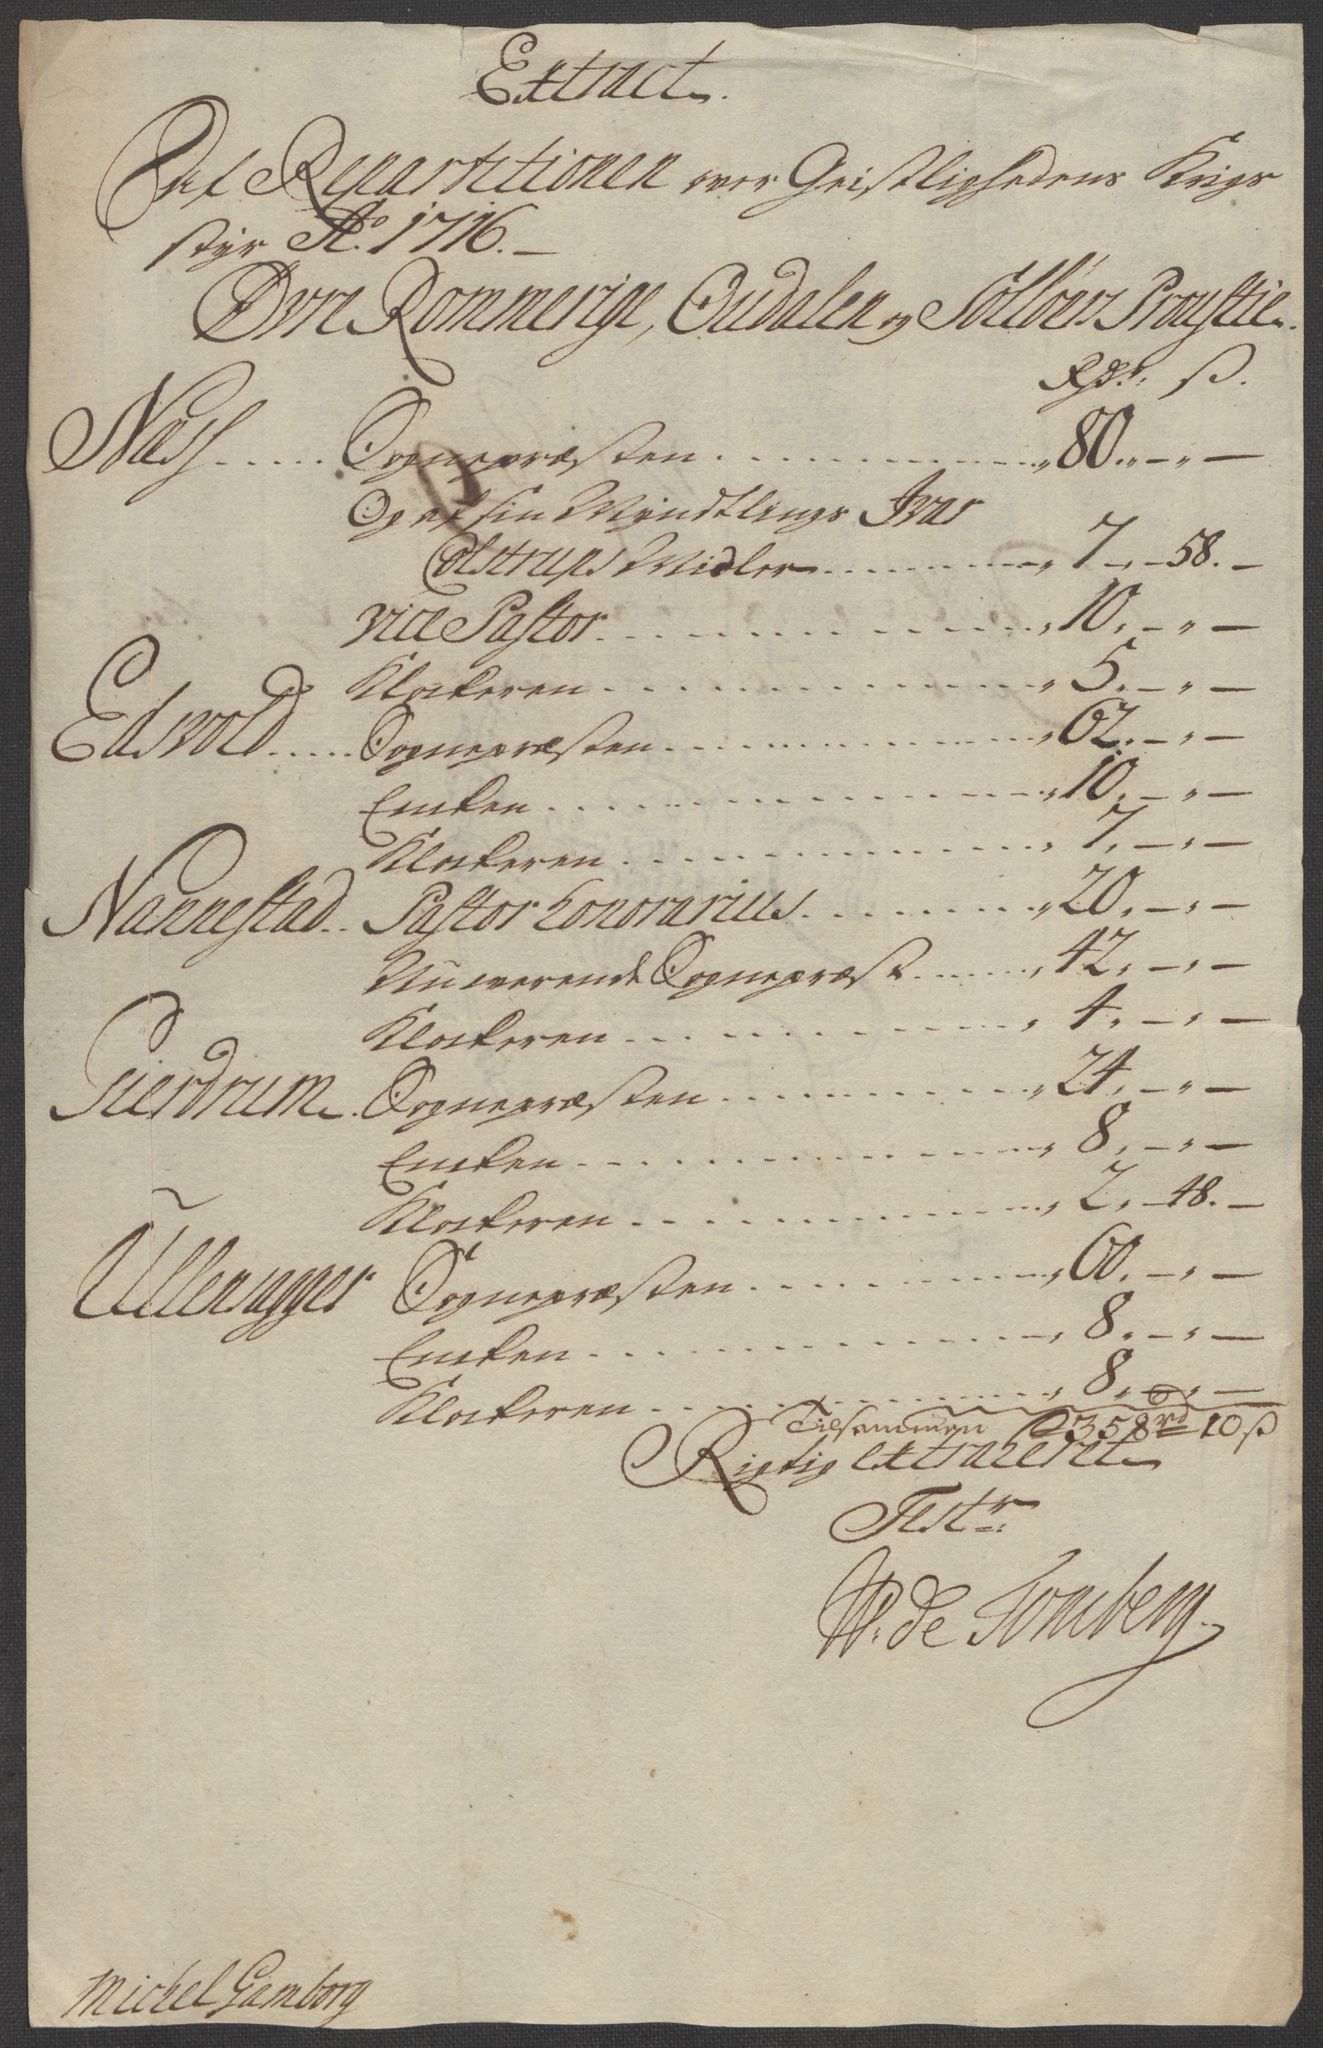 Extract
Af Repartitionen over Geistlighedens Krigs
styr Ao. 1716.
Øvre Rommerige, Oudalen og Sollöers Proustie.
Rdr. ß.
Næss ..... Sognepræsten ........ 80. - . -
Og af sin Myndtlings Ivar
Colstrups Midler ........ 7 - 58. -
Vice Pastor ........ 10. - . -
Klokeren ........ 5. - . -
Edsvold ..... Sognepræsten ........ 62. - . -
Encken ........ 10. - . -
Klokeren ........ 7. - . -
Nannestad .. Pastor honorarius ........ 20. - . -
Nuværende Sognepræst ........ 42. - . -
Klokeren ........ 4. - . -
Gierdrum . Sognepræsten ........ 24. - . -
Encken ........ 8. - . -
Klokeren ........ 2. - 48. -
Ullensager Sognepræsten ........ 60. - . -
Encken ........ 8. - . -
Klokeren ........ 8. - . -
Tilsammen 358 rd 10 ß
Rigtig extraheret
Test:
W. de Tonsberg
Michel Gamborg